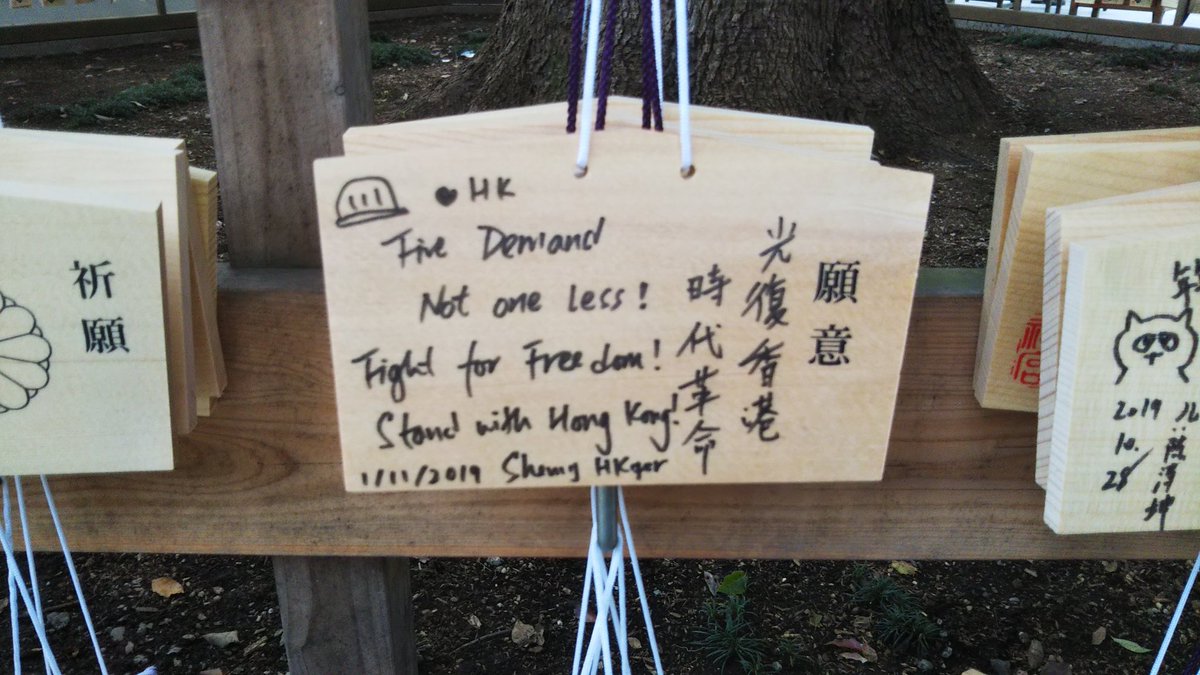 祈願
♥HK
Five Demand
Not one less!
Fight for Freedom!
Stand with Hong Kong!
1/11/2019 HKger
願意
光復香港
時代革命
2019
10.
28/